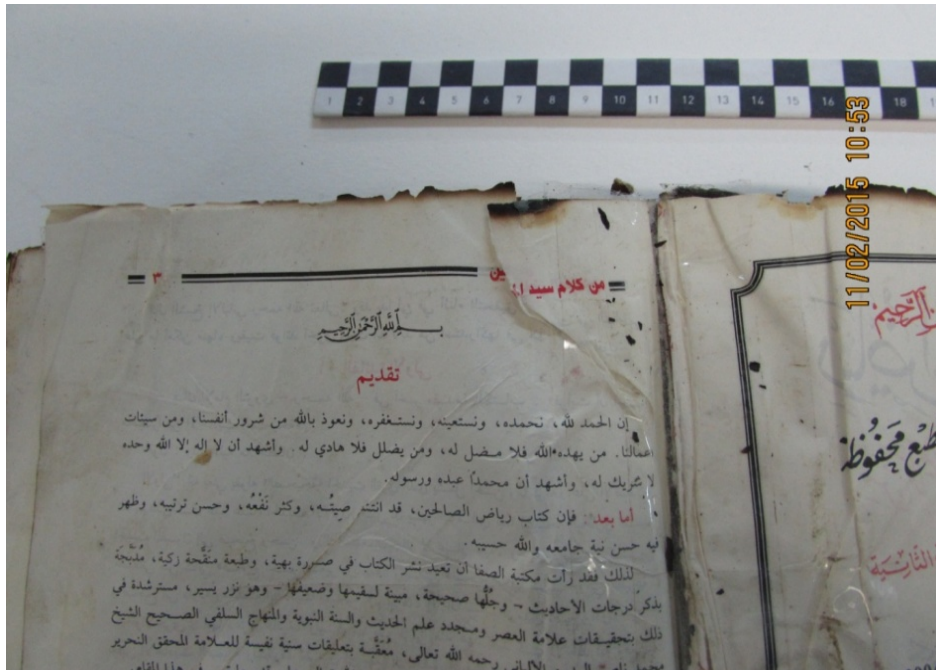 1 2 3 4 5 6 7 8 9 10 11 12 13 14 15 16 18
11/02/2015 10:53
من كلام سيد
٣
بسم الله الرحمن الرحيم
تقديم
إن الحمد لله، نحمده، ونستعينه، ونستغفره، ونعوذ بالله من شرور أنفسنا، ومن سيئات
أعمالنا. من يهده الله فلا مضل له، ومن يضلل فلا هادي له. وأشهد أن لا إله إلا الله وحده
لا شريك له، وأشهد أن محمدًا عبده ورسوله.
أما بعد: فإن كتاب رياض الصالحين، قد انتشر صيتُه، وكثر نَفْعُه، وحسن ترتيبه، وظهر
فيه حسن نية جامعه والله حسيبه.
لذلك فقد رأت مكتبة الصفا أن تعيد نشر الكتاب في صورة بهية، وطبعة منقَّحة زكية، مُدَبَّجَة
بذكر درجات الأحاديث - وجُلُّها صحيحة، مبينة لسقيمها وضعيفها - وهو نزر يسير، مسترشدة في
ذلك بتحقيقات علامة العصر ومجدد علم الحديث والسنة النبوية والمنهاج السلفي الصحيح الشيخ
محمد الألباني رحمه الله تعالى، مُعَقَّبة بتعليقات سنية نفيسة للعلامة المحقق التحرير
الرحيم
طبع محفوظة
الثانية